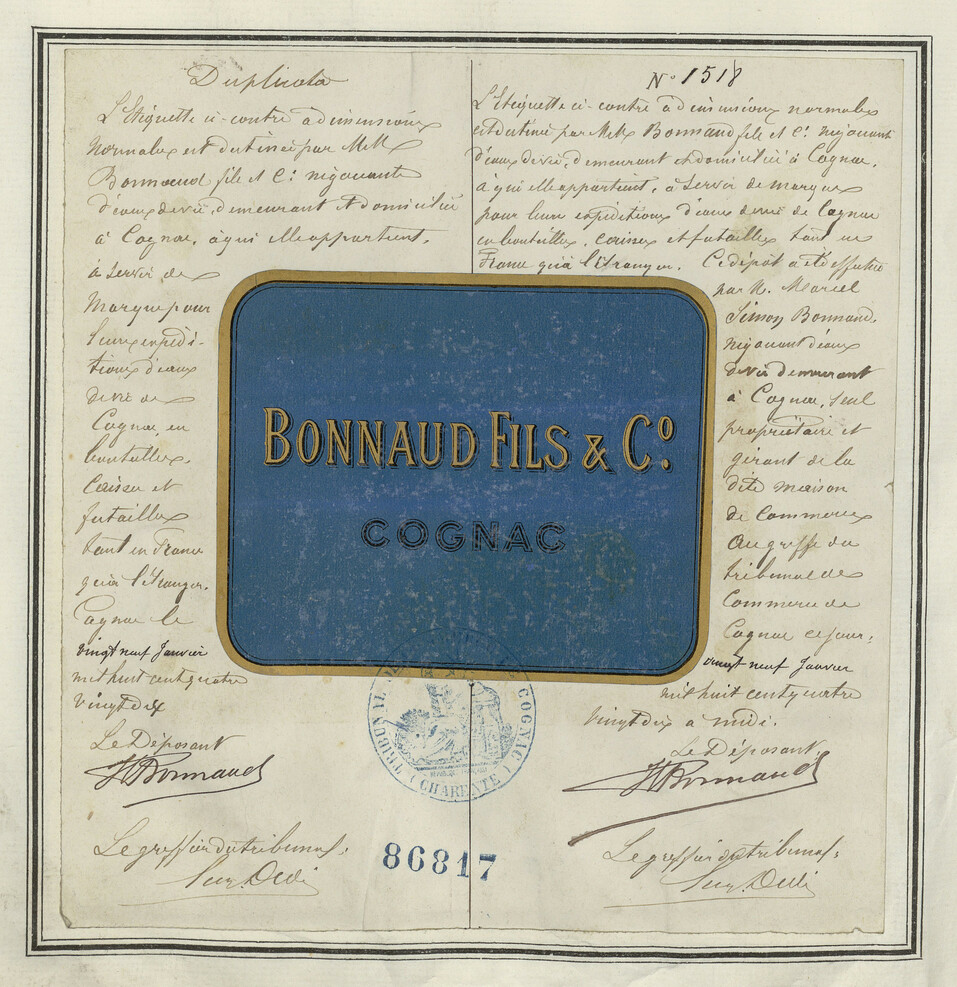 Duplicata
L'Etiquette ci-contre à dimensions
normales est destinée par MM
Bonnaud fils et Cie négociants
d'eaux de vie, demeurant et domiciliés
à Cognac, à qui elle appartient,
à servir de
Marque pour
leurs expédi-
tions d'eaux
de vie de
Cognac en
bouteilles,
Caisses et
futailles
tant en France
qu'à l'Etranger.
Cognac le
vingt neuf Janvier
mil huit cent quatre
vingt dix
Le Déposant
Bonnaud
Le greffier du tribunal:
N° 1518
L'Etiquette ci-contre à dimensions normales
est destinée par MM. Bonnaud fils et Cie négociants
d'eaux de vie, demeurant et domiciliés à Cognac,
à qui elle appartient, à servir de marque
pour leurs expéditions d'eaux de vie de Cognac
en bouteilles, caisses et futailles tant en
France qu'à l'Etranger. Ce dépôt a été effectué
par M. Marcel
Simon Bonnaud,
négociant d'eaux
de vie demeurant
à Cognac, seul
propriétaire et
gérant de la
dite maison
de Commerce
au greffe du
tribunal de
Commerce de
Cognac ce jour:
vingt neuf Janvier
mil huit cent quatre
vingt dix à midi.
Le Déposant
Bonnaud
Le greffier du tribunal:
BONNAUD FILS & Co.
COGNAC
TRIBUNAL DE COMMERCE COGNAC
(CHARENTE)
86817